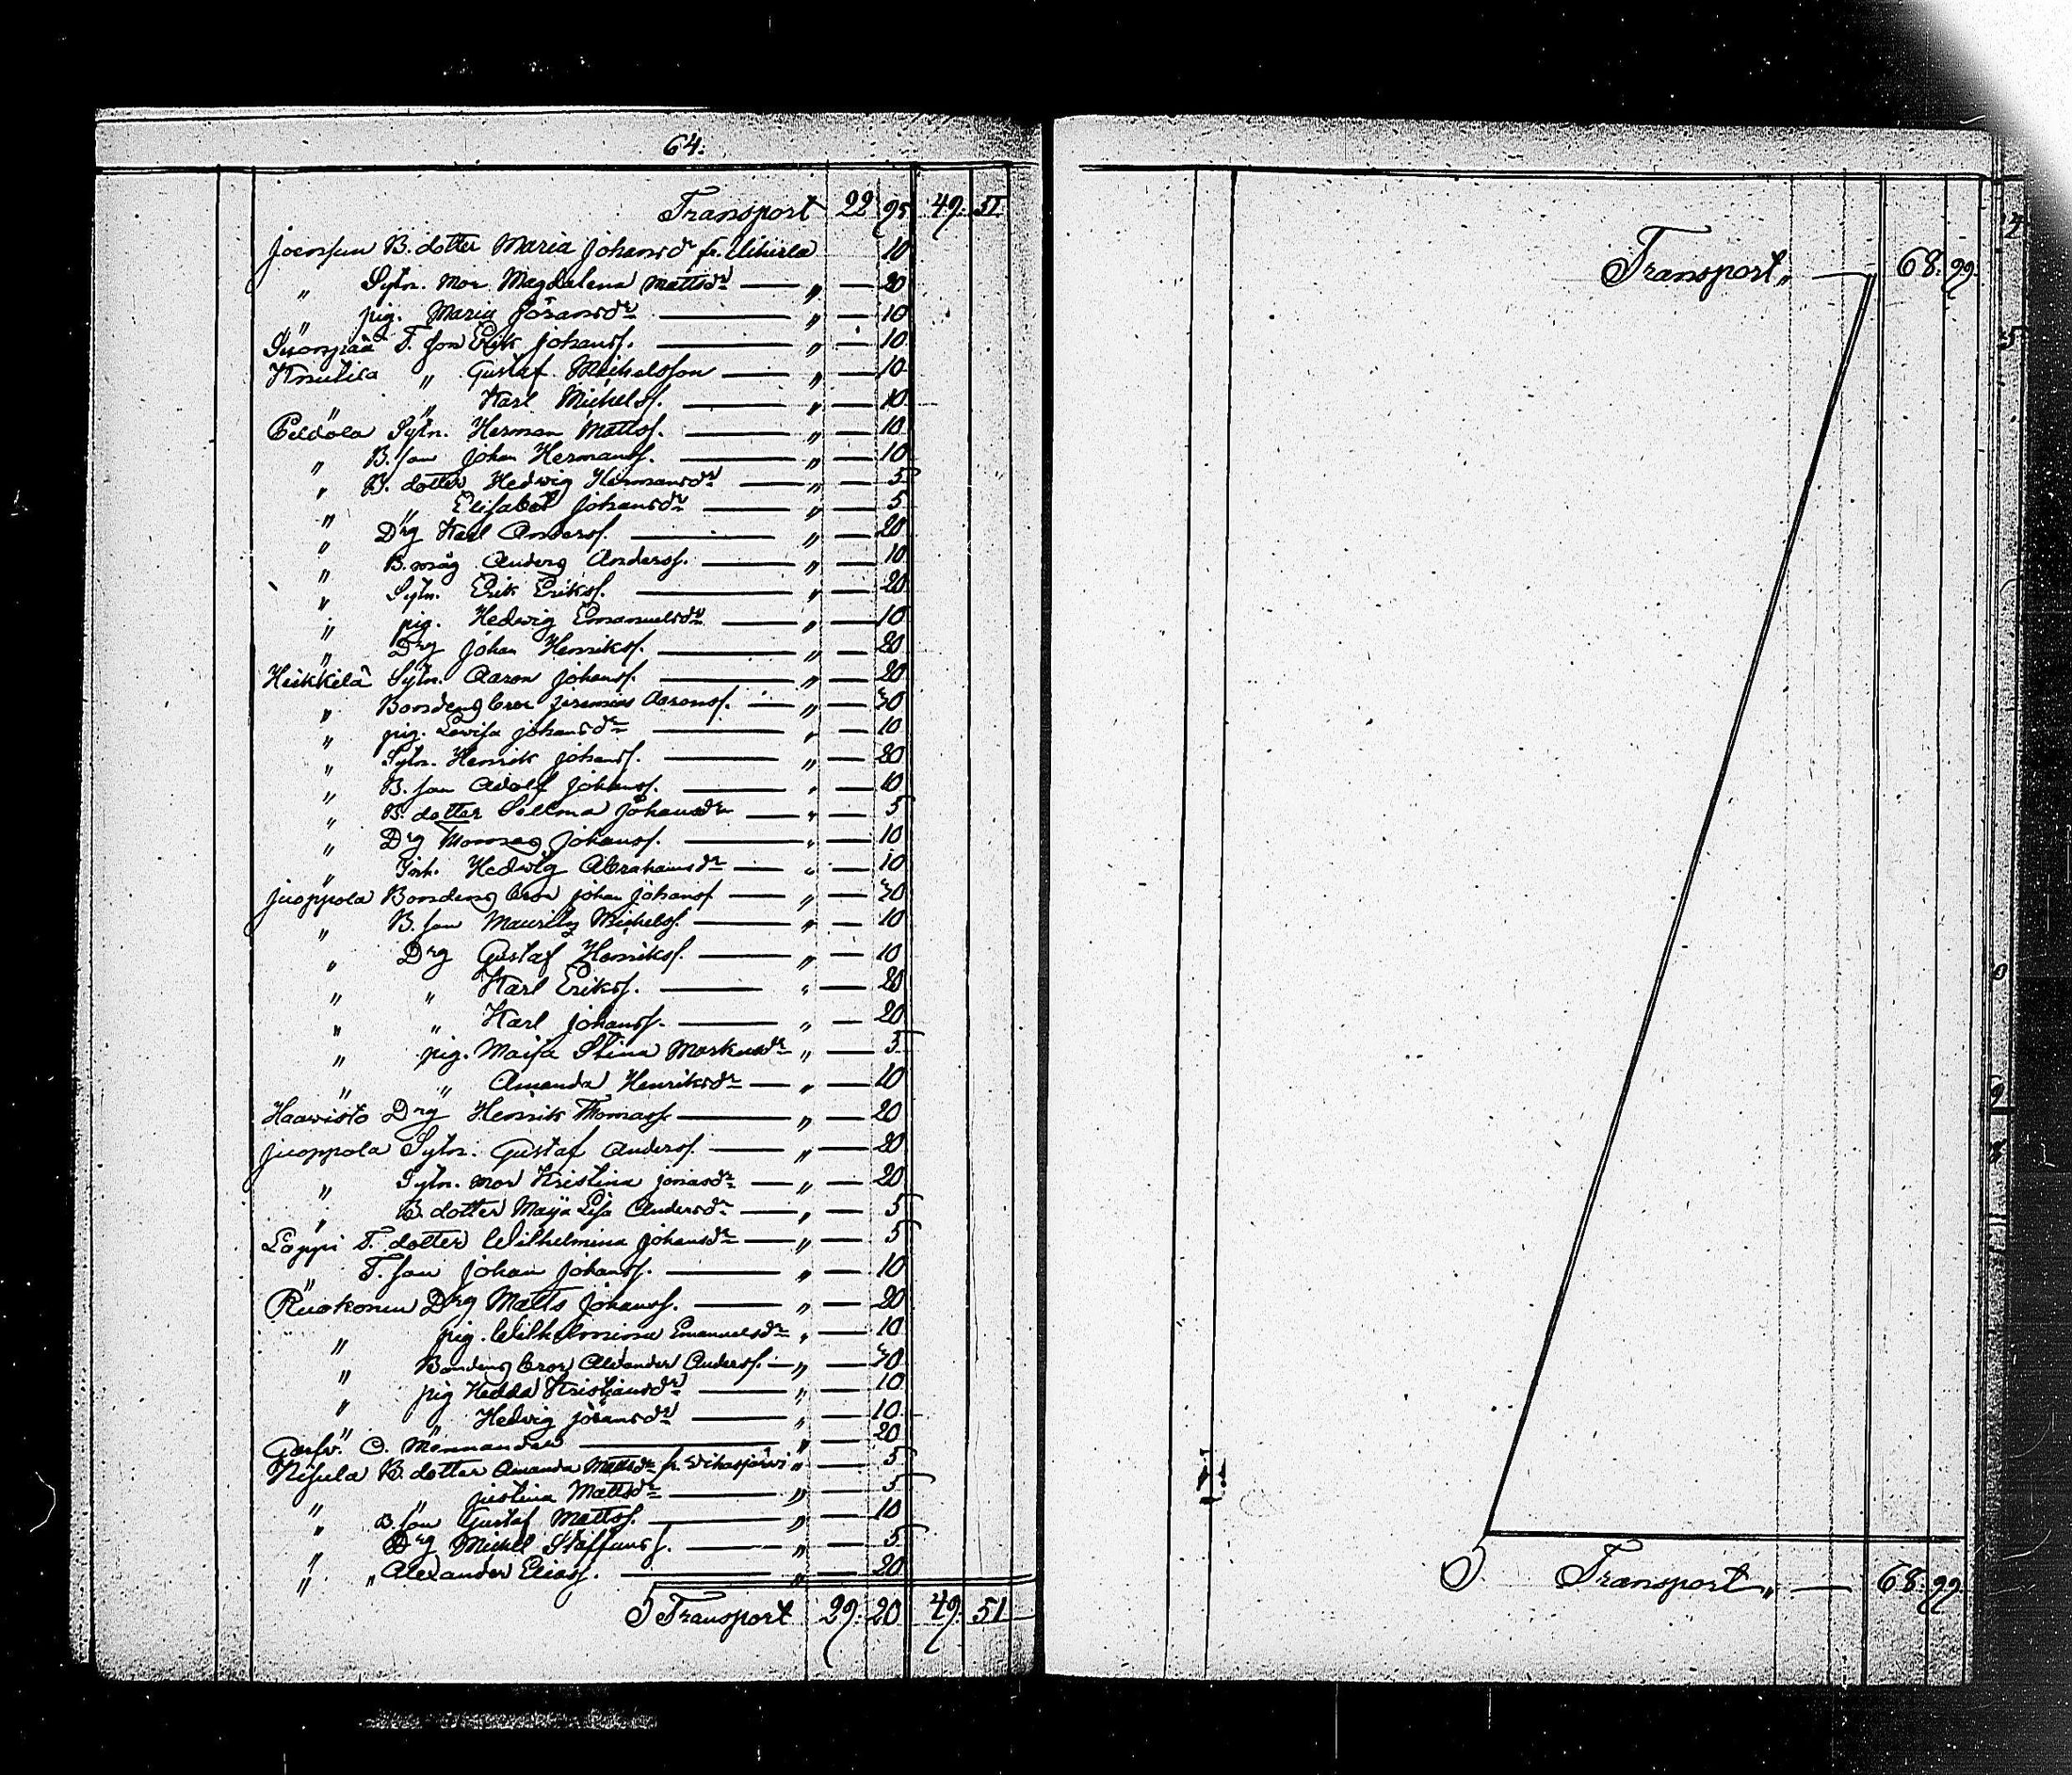 64.
Transport 22 95 49. 51
Joensuu B. dotter Maria Johansdr fr. 10
" Sytn. mor Magdalena Mattsdr — " — 20
" pig. Maria Göransdr — " — 10
Suonpää T. son Erik Johanss. — " — 10
Knutila " Gustaf Michelsson — " — 10
" " Karl Michelss. — " — 10
Peldola Sytn. Herman Mattss. — " — 10
" B. son Johan Hermanss. — " — 10
" B. dotter Hedvig Hermansdr — " — 5
" " Elisabet Johansdr — " — 5
" Drg Karl Anderss. — " — 20
" B. måg Anders Anderss. — " — 10
" Sytn. Erik Erikss. — " — 20
" pig. Hedvig Emanuelsdr — " — 10
" Drg Johan Henrikss. — " — 20
Heikkilä Sytn. Aaron Johanss. — " — 20
" Bondens bror Jeremias Aaronss. — " — 20
" pig. Lovisa Johansdr — " — 10
" Sytn. Henrik Johanss. — " — 20
" B. son Adolf Johanss. — " — 10
" B. dotter Sellma Johansdr — " — 5
" Drg Johanss. — " — 10
" Inh. Hedvig Abrahamsdr — " — 10
Juoppola Bondens bror Johan Johanss. — " — 20
" B. son Maurits Michelss. — " — 10
" Drg Gustaf Henrikss. — " — 10
" " Karl Erikss. — " — 20
" " Karl Johanss. — " — 20
" pig. Maija Stina Markusdr — " — 5
" " Amanda Henriksdr — " — 10
Haavisto Drg Henrik Thomass. — " — 20
Juoppola Sytn. Gustaf Anderss. — " — 20
" Sytn. mor Kristina Jonasdr — " — 20
" B. dotter Maija Lisa Andersdr — " — 5
Lappi T. dotter Wilhelmina Johansdr — " — 5
" T. son Johan Johanss. — " — 10
Ruokonen Drg Matts Johanss. — " — 20
" pig. Wilhelmina Emanuelsdr " — 10
" Bondens bror Alexander Anderss. — " — 20
" pig Hedda Kristiansdr — " — 10
" " Hedvig Göransdr — " — 10
O. Mennander — " — 20
Nisula B. dotter Amanda Mattsdr fr. Vihasjärvi " — 5
" " Justina Mattsdr — " — 5
" B. son Gustaf Mattss. — " — 10
" Drg Michel Staffanss. — " — 5
" " Alexander Eliass. — " — 20
Transport 29. 20 49. 51
Transport " — 68. 99.
Transport " — 68. 99.